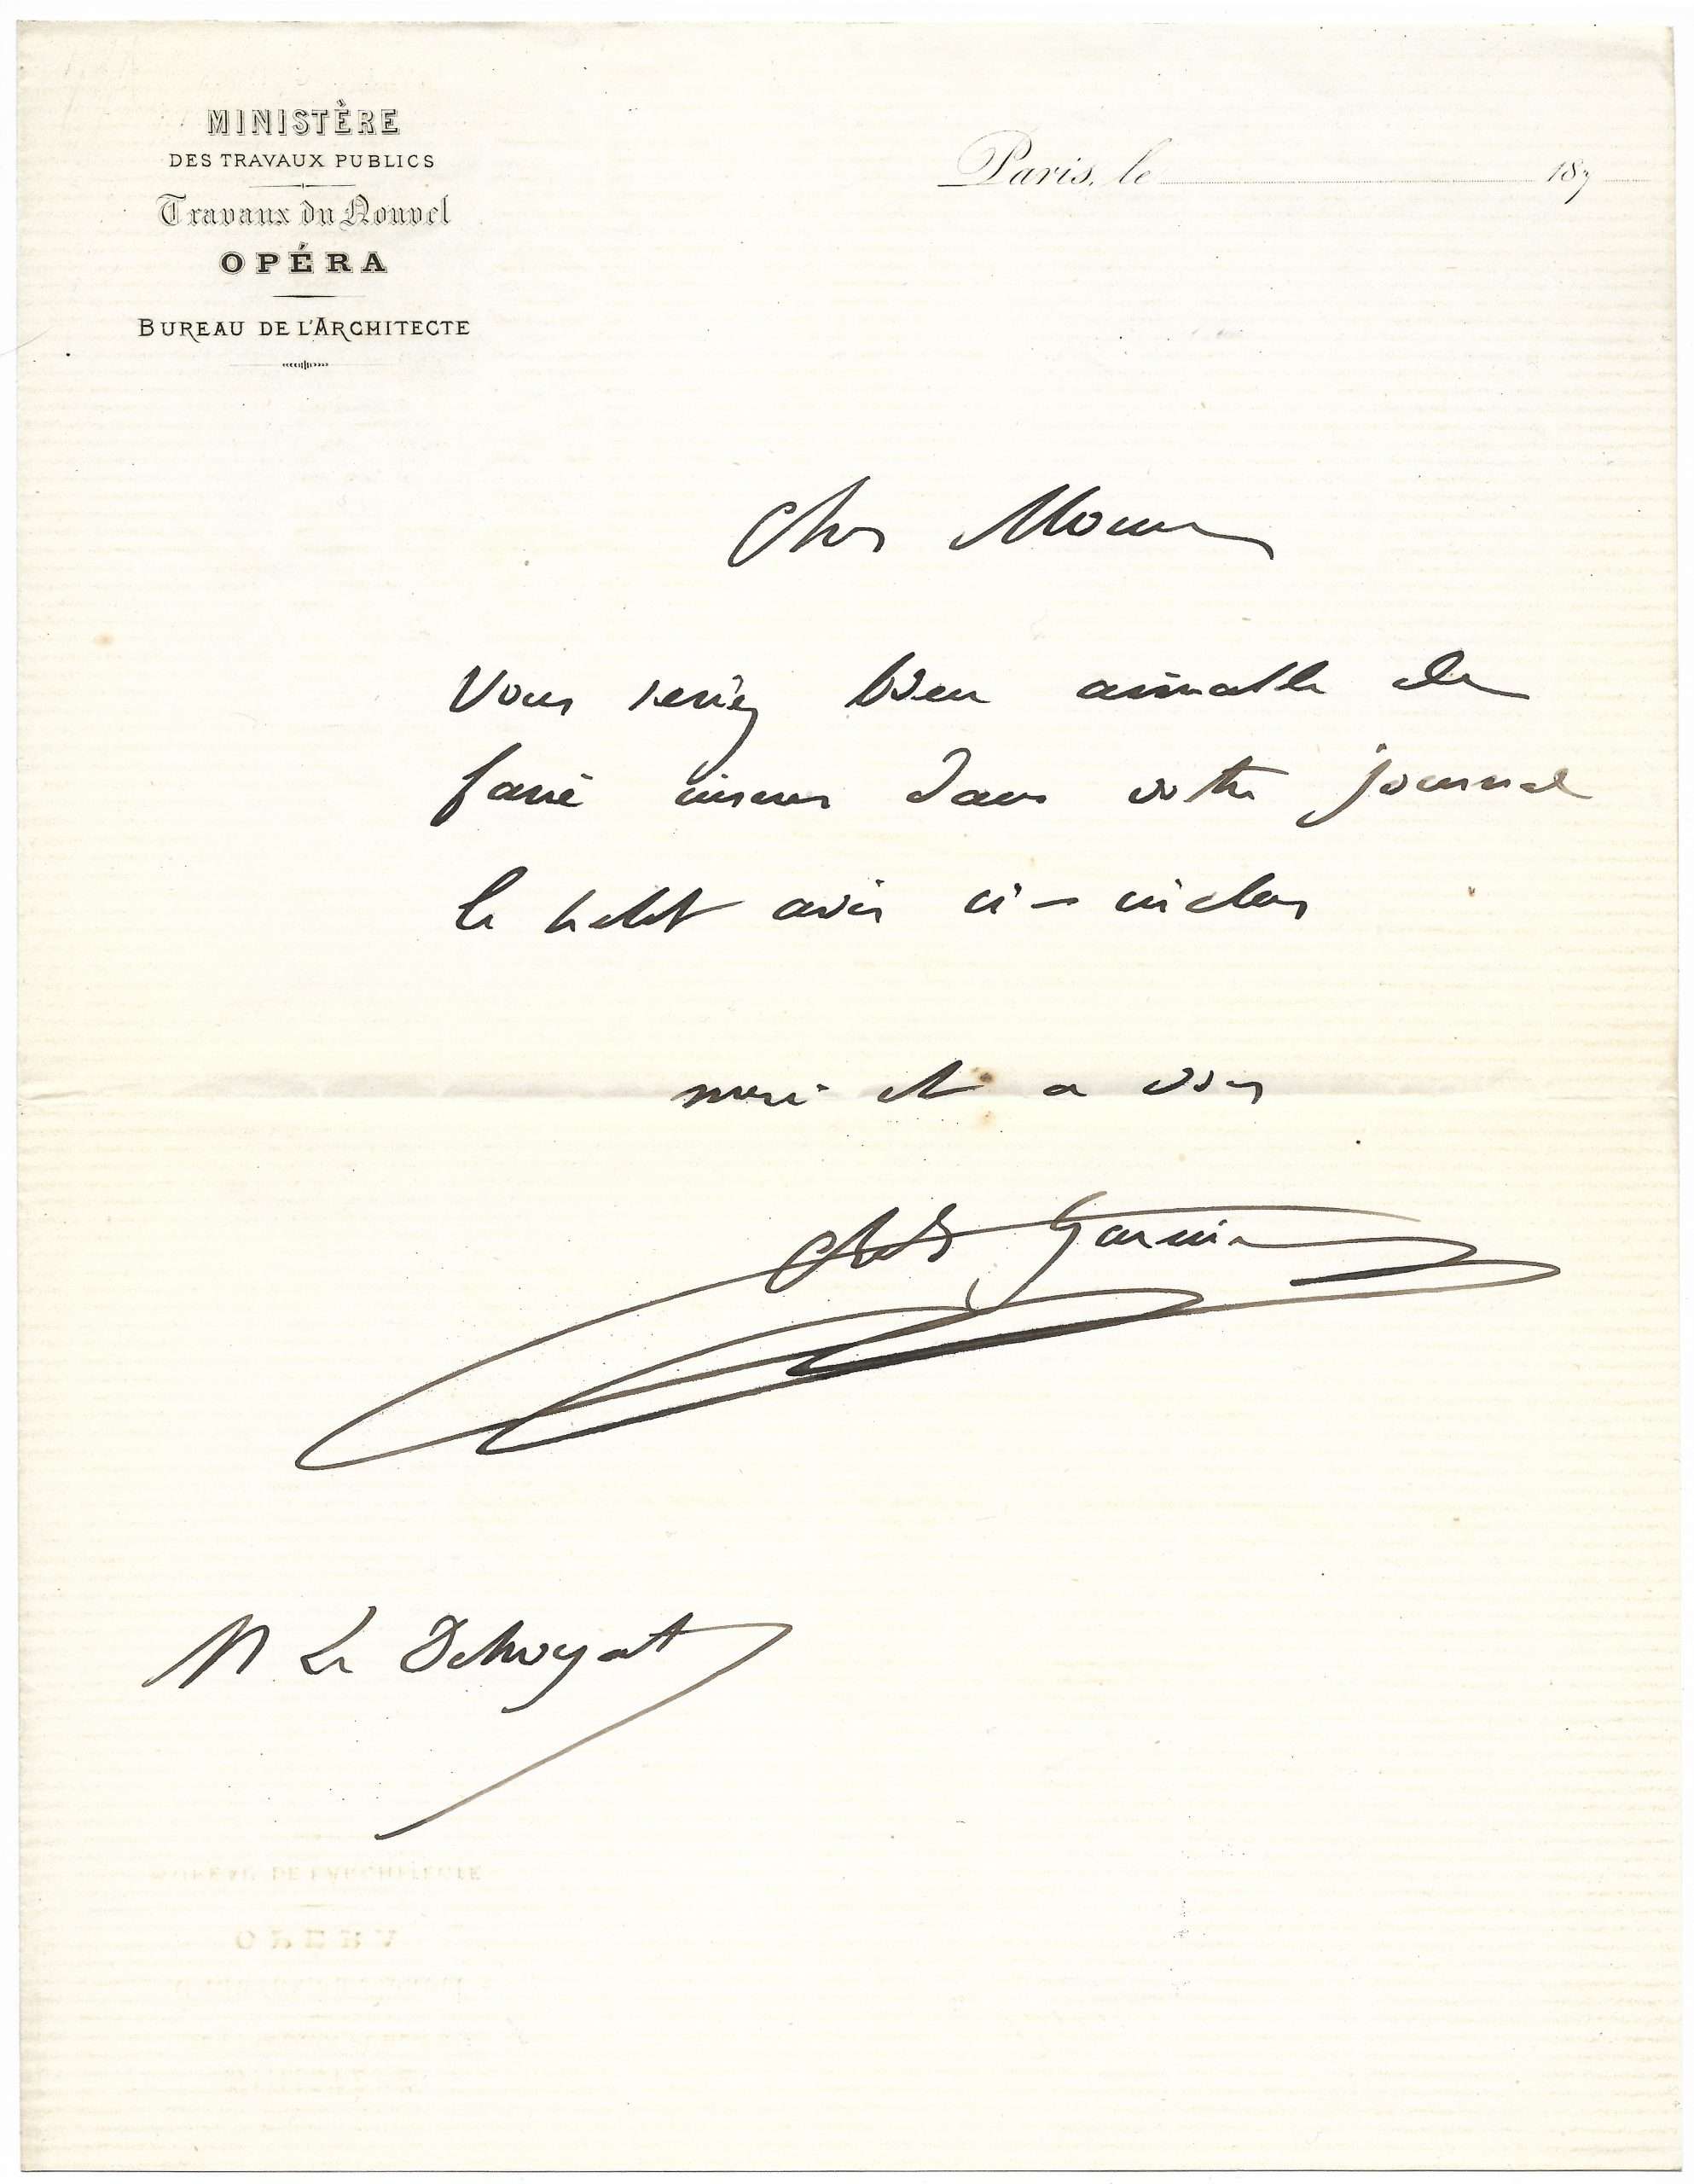 MINISTÈRE
DES TRAVAUX PUBLICS
Travaux du Nouvel
OPÉRA
BUREAU DE L'ARCHITECTE
Paris, le 187
Cher Monsieur
Vous seriez bien aimable de
faire insérer dans votre journal
le petit avis ci-inclus
merci et a vous
Ch Garnier
M Le
BUREAU DE L'ARCHITECTE
OPERA